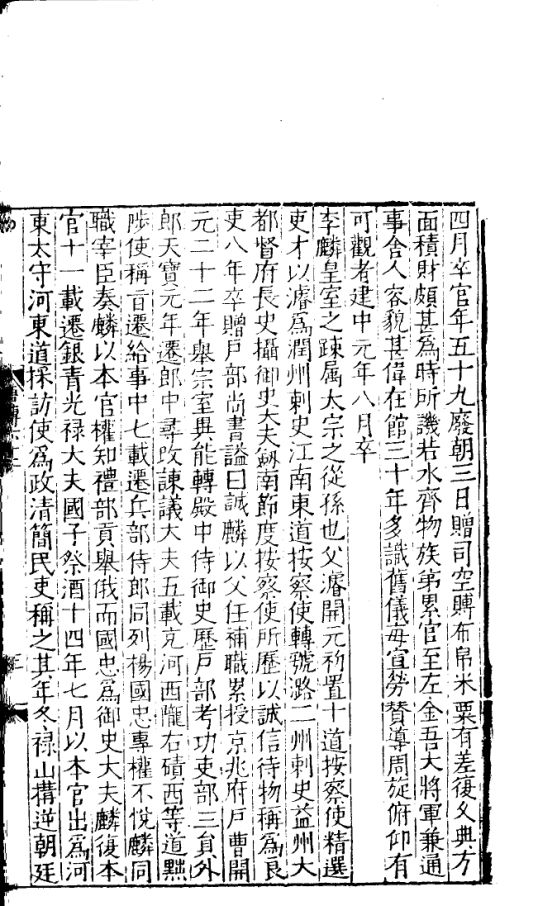 四月卒官年五十九廢朝三日贈司空賻布帛米粟有差復久典方
面積財頗甚爲時所譏若水齊物族弟累官至左金吾大將軍兼通
事舍人容貌甚偉在館三十年多識舊儀每宣勞贊導周旋俯仰有
可觀者建中元年八月卒
李麟皇室之疎属太宗之從孫也父濬開元初置十道按察使精選
吏才以濬爲潤州刺史江南東道按察使轉號潞二州刺史益州大
都督府長史攝御史大夫劔南節度按察使所歷以誠信待物稱爲良
吏八年卒贈戶部尚書謚曰誠麟以父任補職累授京兆府戶曹開
元二十二年舉宗室異能轉殿中侍御史歷戶部考功吏部三員外
郎天寶元年遷郎中尋改諫議大夫五載充河西隴右磧西等道黜
陟使稱旨遷給事中七載遷兵部侍郎同列楊國忠專權不悅麟同
職宰臣奏麟以本官權知禮部貢舉俄而國忠爲御史大夫麟復本
官十一載遷銀青光禄大夫國子祭酒十四年七月以本官出爲河
東太守河東道採訪使爲政清簡民吏稱之其年冬禄山構逆朝廷